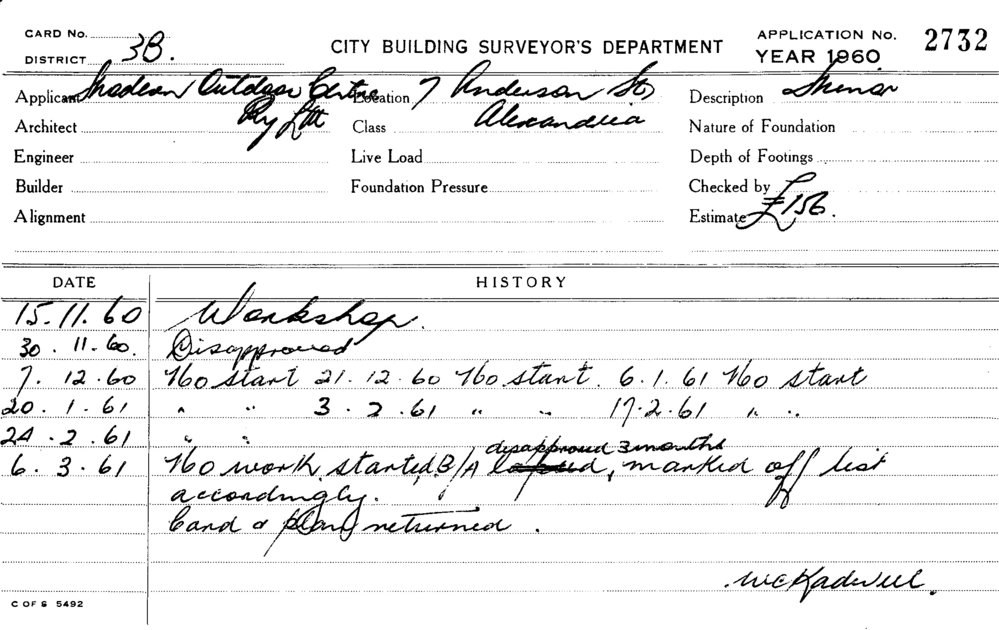 CARD No.
DISTRICT 3B.
CITY BUILDING SURVEYOR'S DEPARTMENT
APPLICATION No. 2732
YEAR 1960
Applicant Outdoor Centre Pty Ltd
Location 7 Anderson St, Alexandria
Description
Architect
Class
Nature of Foundation
Engineer
Live Load
Depth of Footings
Builder
Foundation Pressure
Checked by
Alignment
Estimate £156.
DATE HISTORY
15.11.60 Workshop.
30.11.60. Disapproved
7.12.60 No start 21.12.60 No start. 6.1.61 No start
20.1.61 " " 3.2.61 " " 17.2.61 " "
24.2.61 " "
disapproved 3 months
6.3.61 No work started, B/A lapsed, marked off list
accordingly.
Card & plans returned.
C OF S 5492